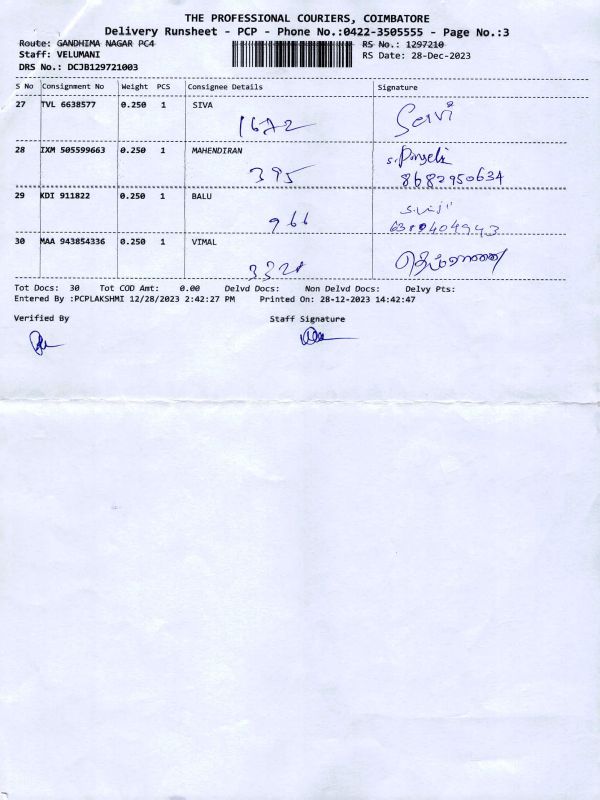 THE PROFESSIONAL COURIERS, COIMBATORE
Delivery Runsheet - PCP - Phone No.:0422-3505555 - Page No.:3
Route: GANDHIMA NAGAR PC4
RS No.: 1297210
Staff: VELUMANI
RS Date: 28-Dec-2023
DRS No.: DCJB129721003
S No Consignment No Weight PCS Consignee Details Signature
27 TVL 6638577 0.250 1 SIVA
1672
28 IXM 505599663 0.250 1 MAHENDIRAN
395 8682950634
29 KDI 911822 0.250 1 BALU
966
30 MAA 943854336 0.250 1 VIMAL
Tot Docs: 30 Tot COD Amt: 0.00 Delvd Docs: Non Delvd Docs: Delvy Pts:
Entered By :PCPLAKSHMI 12/28/2023 2:42:27 PM Printed On: 28-12-2023 14:42:47
Verified By Staff Signature